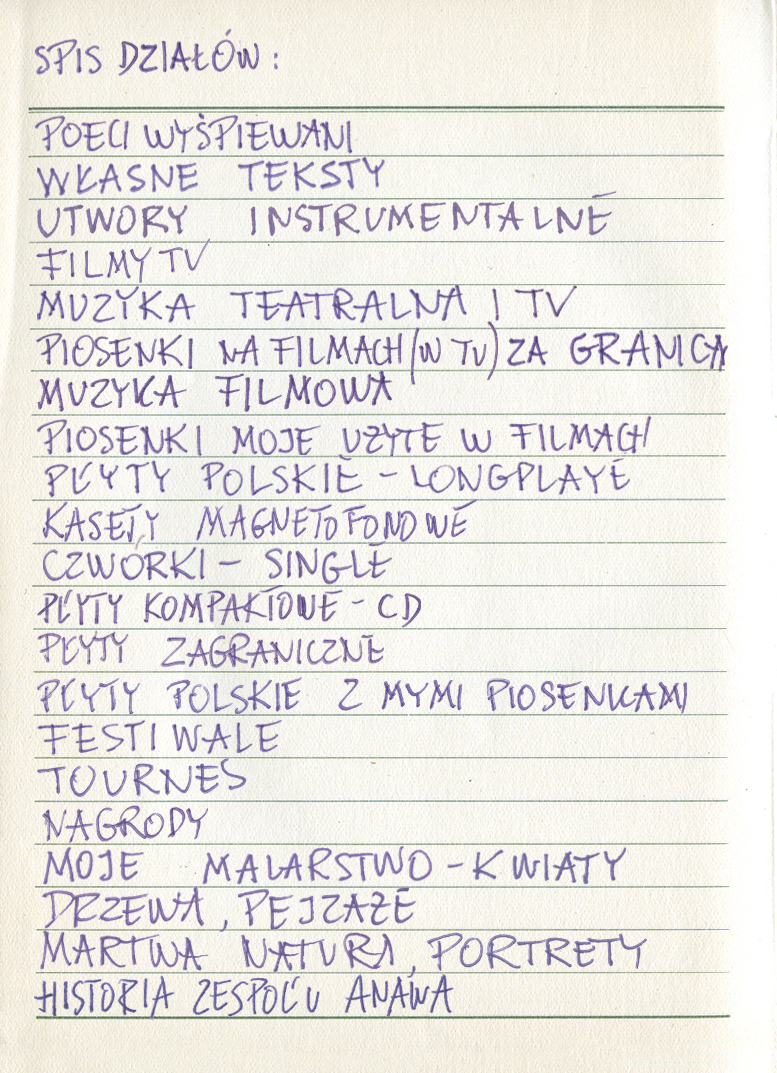 SPIS DZIAŁÓW :
POECI WYŚPIEWANI
WŁASNE TEKSTY
UTWORY INSTRUMENTALNE
FILMY TV
MUZYKA TEATRALNA I TV
PIOSENKI NA FILMACH (W TV) ZA GRANICĄ
MUZYKA FILMOWA
PIOSENKI MOJE UŻYTE W FILMACH
PŁYTY POLSKIE - LONGPLAYE
KASETY MAGNETOFONOWE
CZWÓRKI - SINGLE
PŁYTY KOMPAKTOWE - CD
PŁYTY ZAGRANICZNE
PŁYTY POLSKIE Z MYMI PIOSENKAMI
FESTIWALE
TOURNES
NAGRODY
MOJE MALARSTWO - KWIATY
DRZEWA, PEJZAŻE
MARTWA NATURA, PORTRETY
HISTORIA ZESPOŁU ANAWA